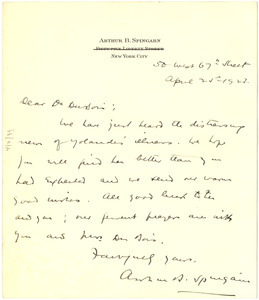 ARTHUR B. SPINGARN
FORTY-TWO LIBERTY STREET
NEW YORK CITY
50 West 67th Street
April 25th 1923.
Dear Dr. DuBois:
We have just heard the distressing
news of Yolande's illness. We hope
you will find her better than you
had expected and we send our warm
good wishes. All good luck to her
and you; our fervent prayers are with
you and Mrs. Du Bois.
Faithfully yours,
Arthur B. Spingarn